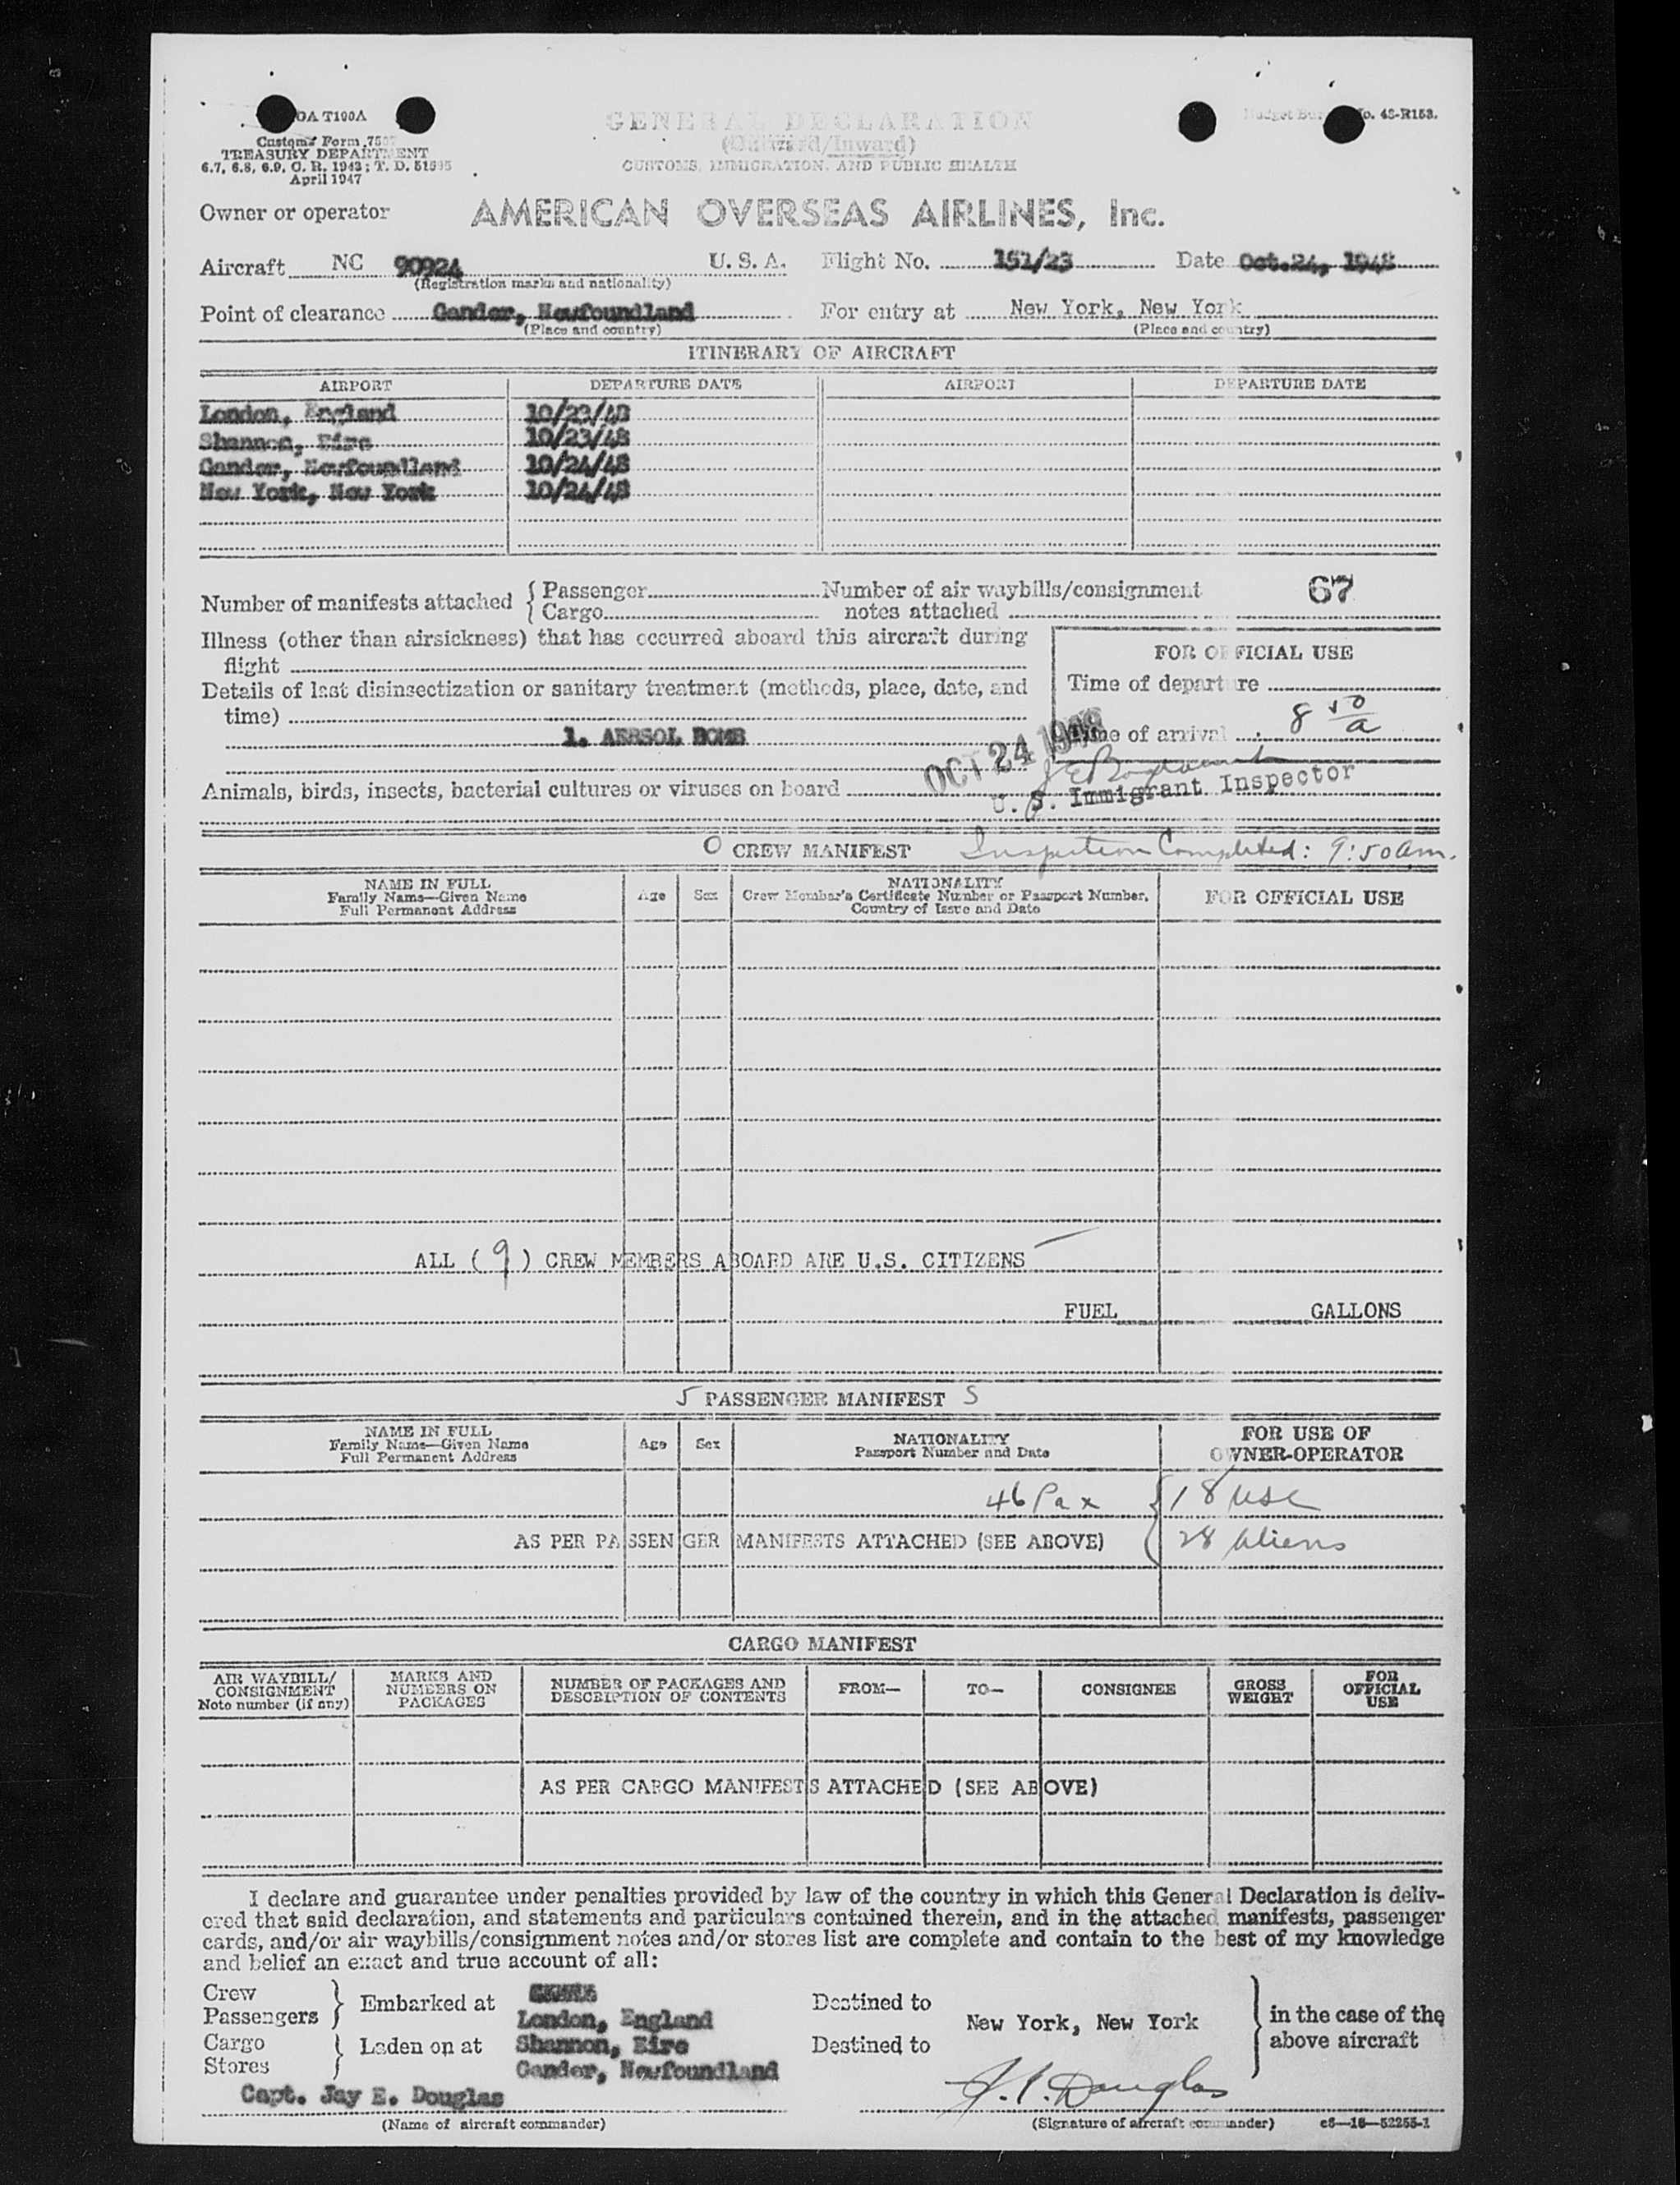 OA T100A
Customs Form
TREASURY DEPARTMENT
6.7, 6.8, 6.9, C. R. 1943; T. D.
April 1947
GENERAL DECLARATION
(Outward/Inward)
CUSTOMS, IMMIGRATION, AND PUBLIC HEALTH
Budget Bureau No. 48-R153.
Owner or operator AMERICAN OVERSEAS AIRLINES, Inc.
Aircraft NC 90924 U. S. A. Flight No. 151/23 Date Oct.24, 1948
(Registration marks and nationality)
Point of clearance Gander, Newfoundland For entry at New York, New York
(Place and country) (Place and country)
ITINERARY OF AIRCRAFT
AIRPORT DEPARTURE DATE AIRPORT DEPARTURE DATE
London, England 10/23/48
Shannon, Eire 10/23/48
Gander, Newfoundland 10/24/48
New York, New York 10/24/48
Number of manifests attached { Passenger Number of air waybills/consignment 67
{ Cargo notes attached
Illness (other than airsickness) that has occurred aboard this aircraft during
flight
Details of last disinsectization or sanitary treatment (methods, place, date, and
time)
1. AERSOL BOMB
Animals, birds, insects, bacterial cultures or viruses on board
FOR OFFICIAL USE
Time of departure
Time of arrival 8 50/a
OCT 24 1948
U. S. Immigrant Inspector
O CREW MANIFEST Inspection Completed: 9:50am.
NAME IN FULL
Family Name—Given Name
Full Permanent Address
Age Sex
NATIONALITY
Crew Member's Certificate Number or Passport Number,
Country of Issue and Date
FOR OFFICIAL USE
ALL ( 9 ) CREW MEMBERS ABOARD ARE U.S. CITIZENS
FUEL GALLONS
5 PASSENGER MANIFEST S
NAME IN FULL
Family Name—Given Name
Full Permanent Address
Age Sex
NATIONALITY
Passport Number and Date
FOR USE OF
OWNER-OPERATOR
46 Pax { 18 USC
AS PER PASSENGER MANIFESTS ATTACHED (SEE ABOVE) 28 Aliens
CARGO MANIFEST
AIR WAYBILL/
CONSIGNMENT
Note number (if any)
MARKS AND
NUMBERS ON
PACKAGES
NUMBER OF PACKAGES AND
DESCRIPTION OF CONTENTS
FROM— TO— CONSIGNEE
GROSS
WEIGHT
FOR
OFFICIAL
USE
AS PER CARGO MANIFESTS ATTACHED (SEE ABOVE)
I declare and guarantee under penalties provided by law of the country in which this General Declaration is deliv-
ered that said declaration, and statements and particulars contained therein, and in the attached manifests, passenger
cards, and/or air waybills/consignment notes and/or stores list are complete and contain to the best of my knowledge
and belief an exact and true account of all:
Crew
Passengers } Embarked at London, England Destined to
Cargo
Stores } Laden on at Shannon, Eire Destined to
Gander, Newfoundland
New York, New York
} in the case of the
above aircraft
Capt. Jay E. Douglas J. E. Douglas
(Name of aircraft commander) (Signature of aircraft commander) c8—16—52255-1